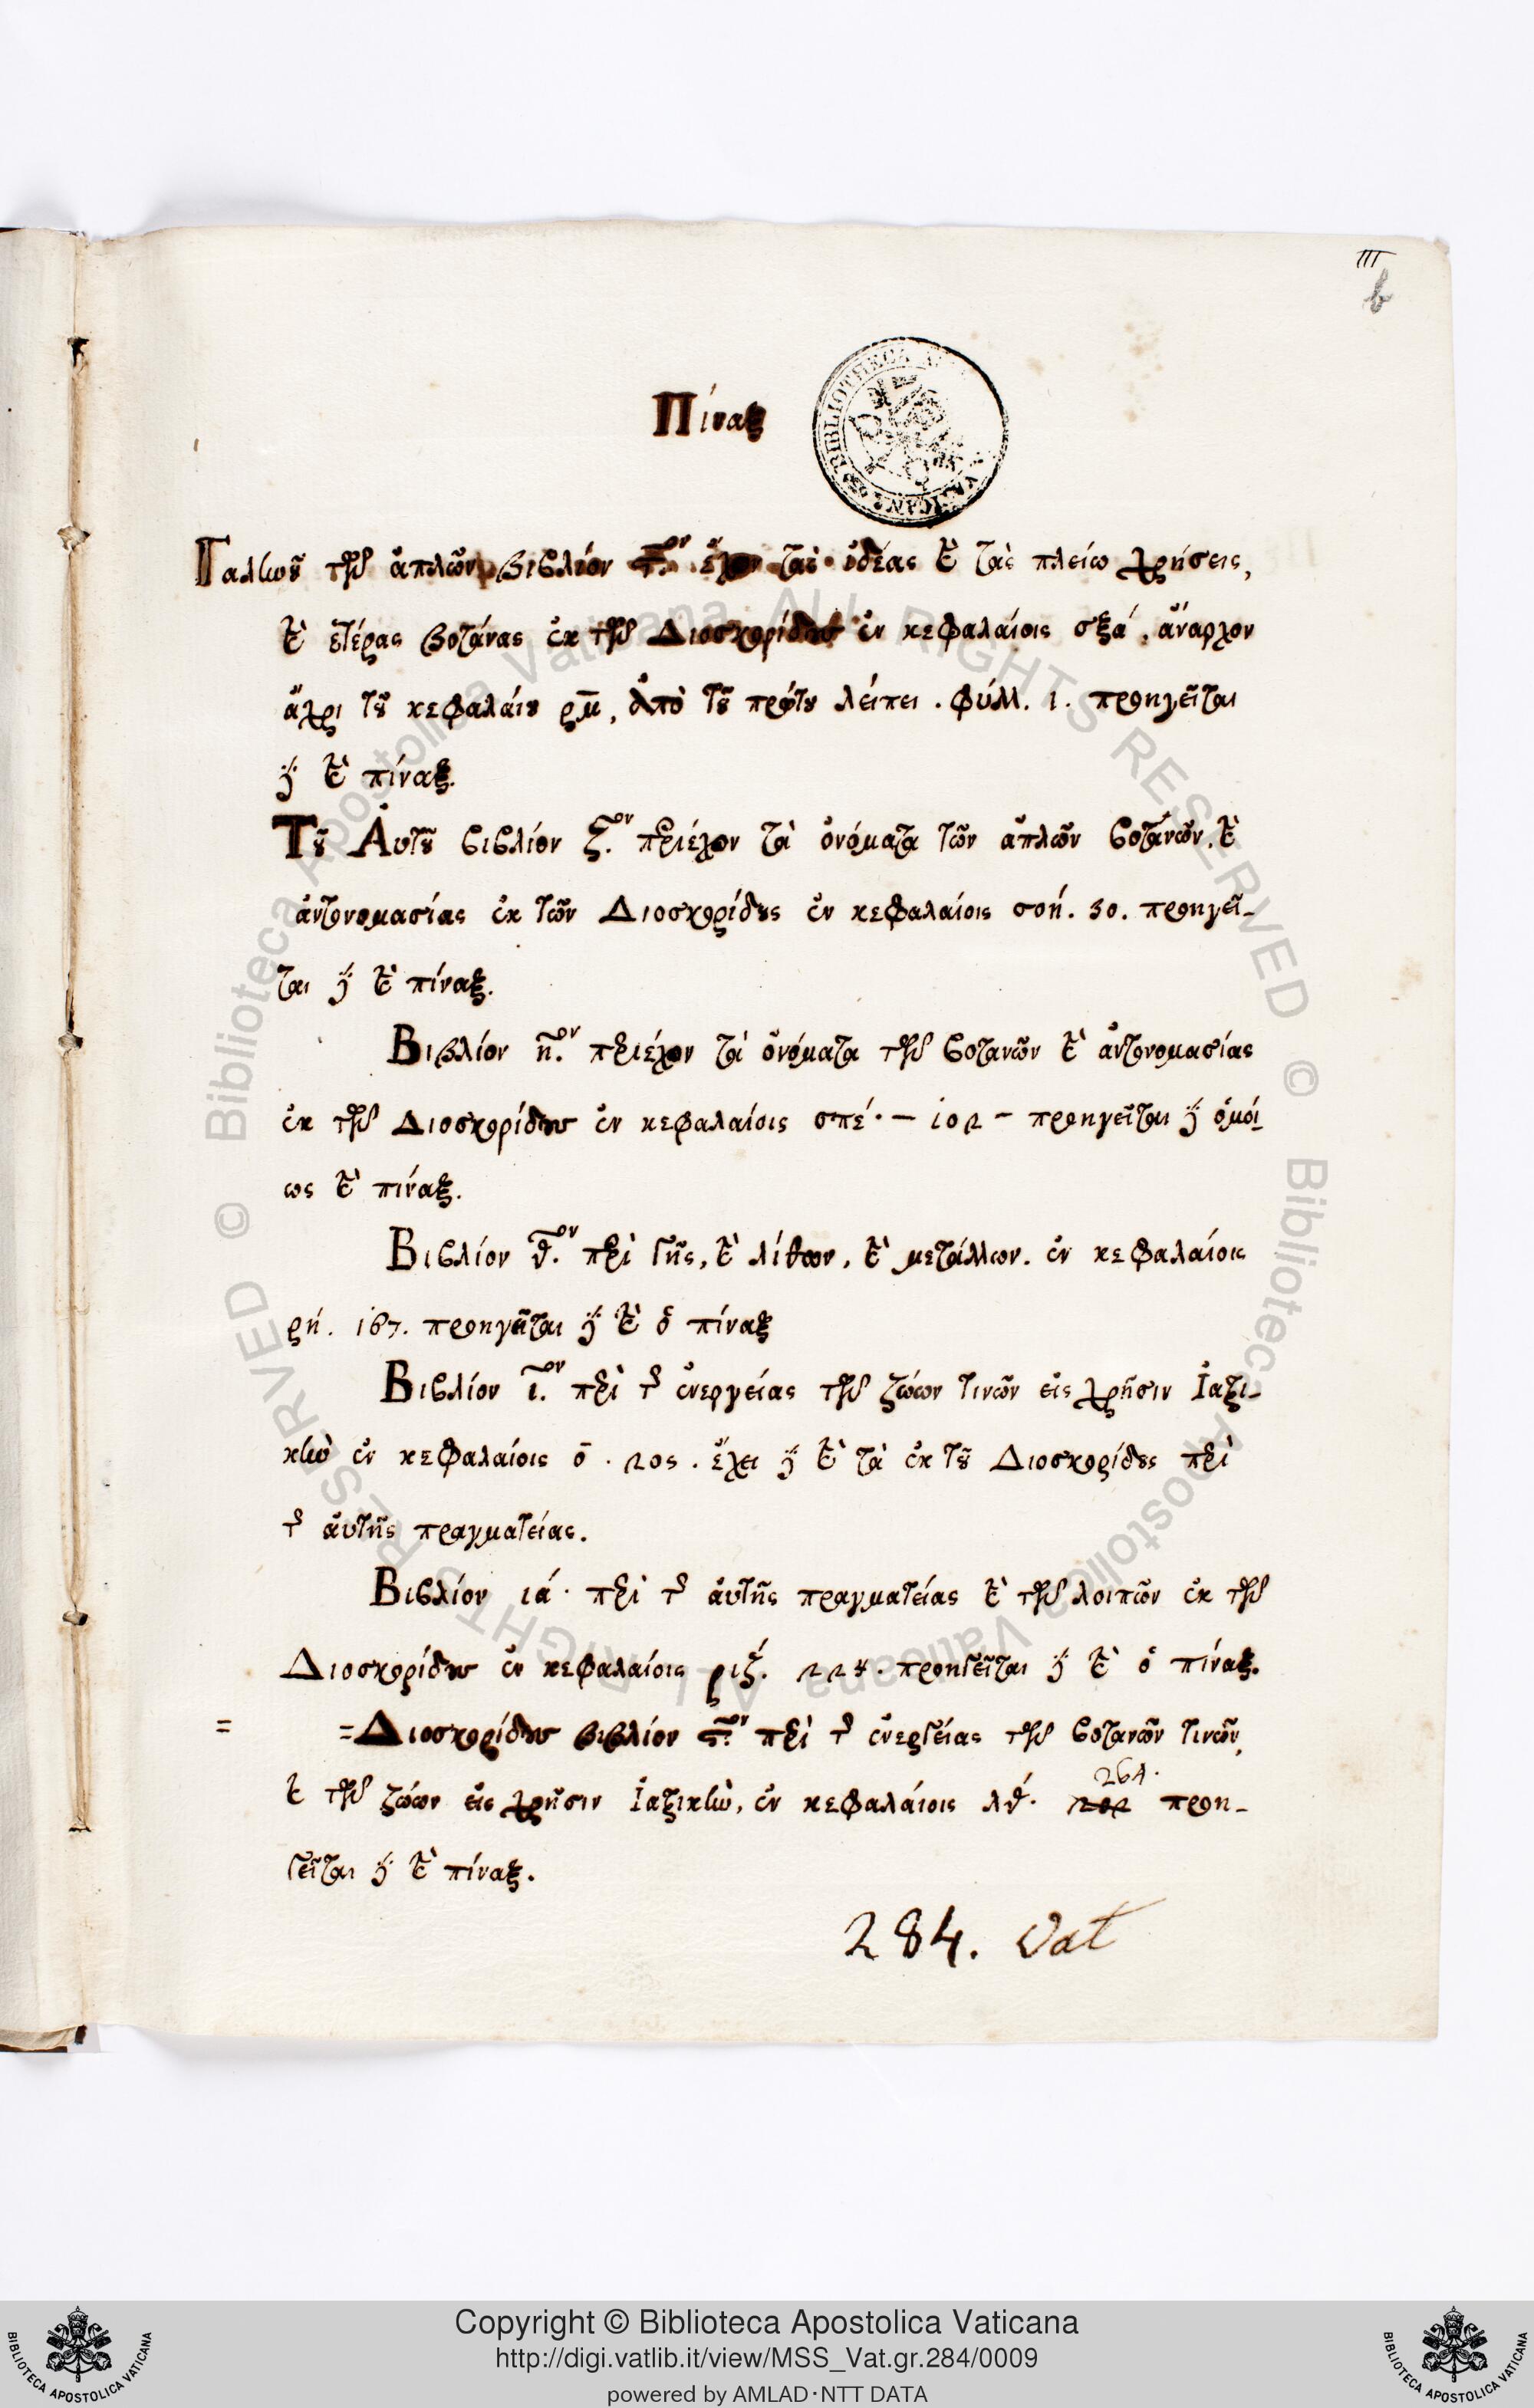 III
b
Πίναξ
Γαληνοῦ τῶν ἁπλῶν βιβλίον ϛ.ον ἔχον τὰς ἰδέας καὶ τὰς πλείω χρήσεις,
καὶ ἑτέρας βοτάνας ἐκ τῶν Διοσκορίδου ἐν κεφαλαίοις σξά. ἄναρχον
ἄχρι τοῦ κεφαλαίου ρμ, ἀπὸ τοῦ πρώτου λείπει. φύλλ. 1. προηγεῖται
δὲ καὶ πίναξ.
Τοῦ Αὐτοῦ βιβλίον ζ.ον περιέχον τὰ ὀνόματα τῶν ἁπλῶν βοτάνων. καὶ
ἀντονομασίας ἐκ τῶν Διοσκορίδους ἐν κεφαλαίοις σοή. 30. προηγεῖ-
ται δὲ καὶ πίναξ.
Βιβλίον η.ον περιέχον τὰ ὀνόματα τῶν βοτανῶν καὶ ἀντονομασίας
ἐκ τῶν Διοσκορίδου ἐν κεφαλαίοις σπέ. – 102 – προηγεῖται δὲ ὁμοί-
ως καὶ πίναξ.
Βιβλίον θ.ον περὶ γῆς, καὶ λίθων, καὶ μετάλλων. ἐν κεφαλαίοις
ρή. 167. προηγῆται δὲ καὶ ὁ πίναξ
Βιβλίον ι.ον περὶ τῆς ἐνεργείας τῶν ζώων τινῶν εἰς χρῆσιν Ἰατρι-
κὴν ἐν κεφαλαίοις ο. 205. ἔχει δὲ καὶ τὰ ἐκ τοῦ Διοσκορίδους περὶ
τῆς αὐτῆς πραγματείας.
Βιβλίον ιά. περὶ τῆς αὐτῆς πραγματείας καὶ τῶν λοιπῶν ἐκ τῶν
Διοσκορίδου ἐν κεφαλαίοις ριζ. 224. προηγεῖται δὲ καὶ ὁ πίναξ.
= =Διοσκορίδου βιβλίον ϛ.ον περὶ τῆς ἐνεργείας τῶν βοτανῶν τινῶν,
καὶ τῶν ζώων εἰς χρῆσιν Ἰατρικὴν, ἐν κεφαλαίοις λθ. 264. 202 προη-
γεῖται δὲ καὶ πίναξ.
284. Vat
Copyright © Biblioteca Apostolica Vaticana
http://digi.vatlib.it/view/MSS_Vat.gr.284/0009
powered by AMLAD·NTT DATA